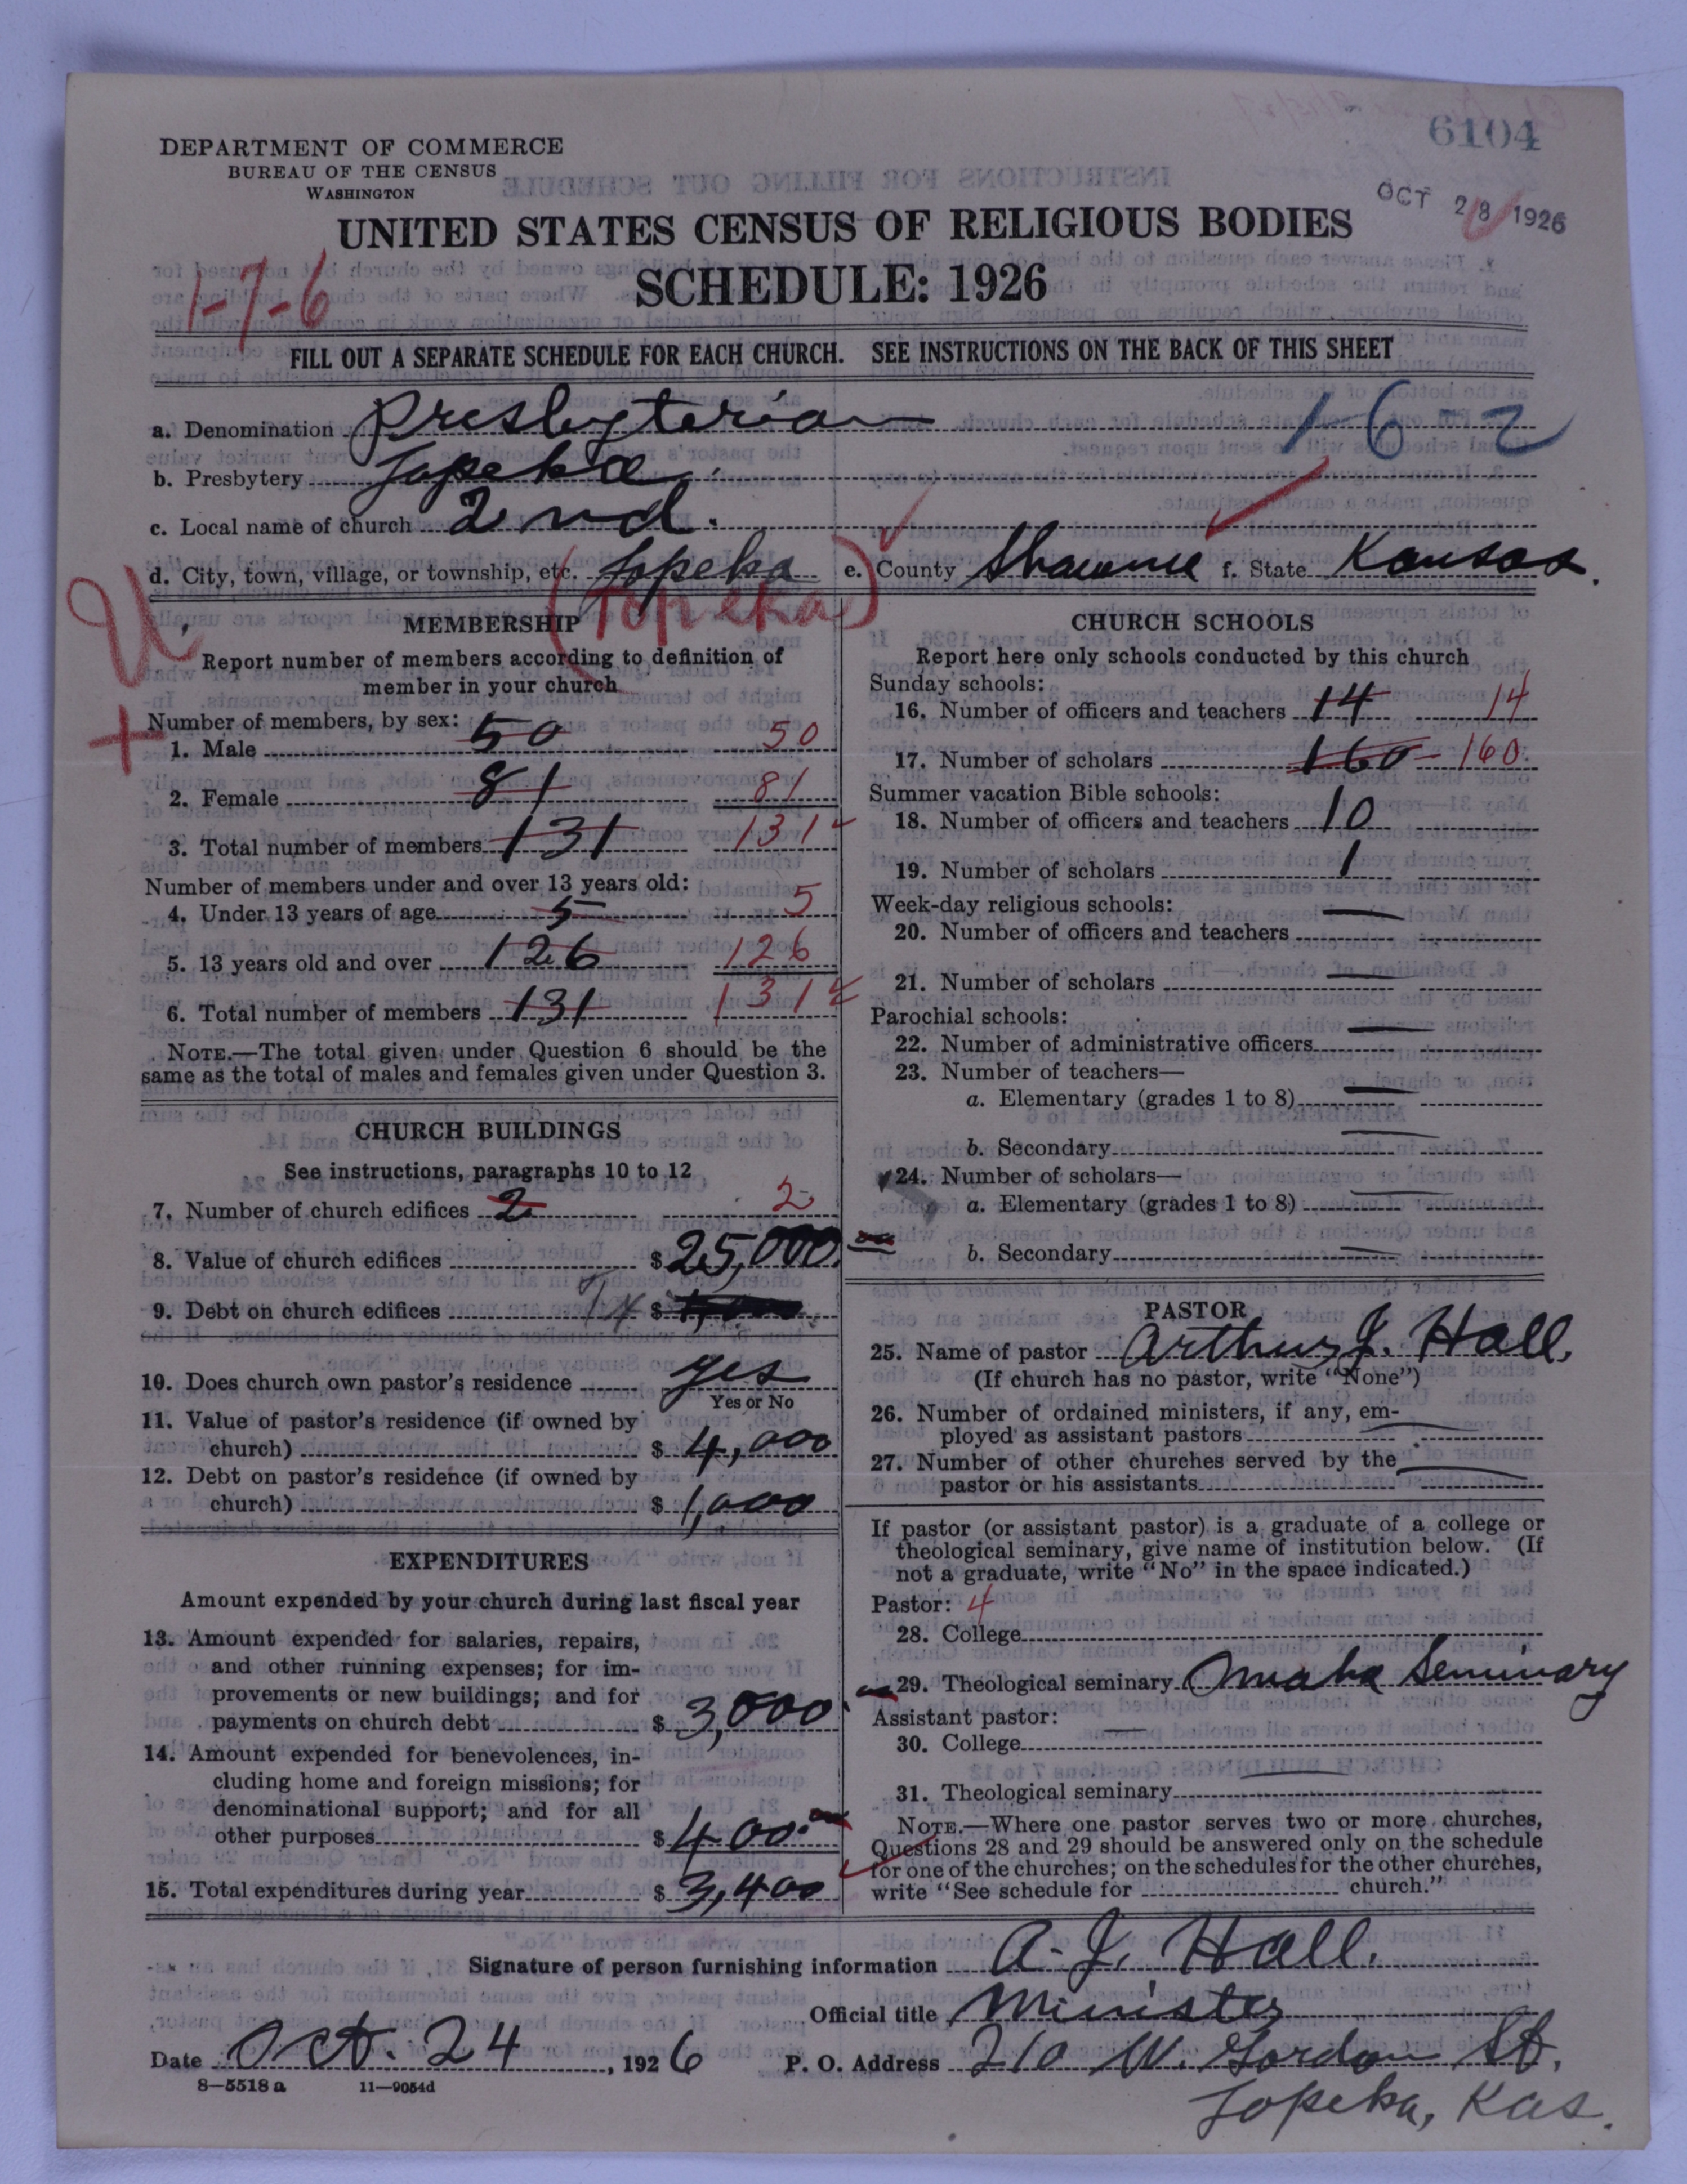 6104
DEPARTMENT OF COMMERCE
BUREAU OF THE CENSUS
WASHINGTON
OCT 28 1926
UNITED STATES CENSUS OF RELIGIOUS BODIES
SCHEDULE: 1926
1-7-6
FILL OUT A SEPARATE SCHEDULE FOR EACH CHURCH. SEE INSTRUCTIONS ON THE BACK OF THIS SHEET
a. Denomination Presbyterian 1-6-2
b. Presbytery Topeka
c. Local name of church 2nd.
d. City, town, village, or township, etc. Topeka e. County Shawnee f. State Kansas.
(Topeka)
U
+
MEMBERSHIP
Report number of members according to definition of
member in your church
Number of members, by sex:
1. Male 50 50
2. Female 81 81
3. Total number of members 131 131
Number of members under and over 13 years old:
4. Under 13 years of age 5 5
5. 13 years old and over 126 126
6. Total number of members 131 131
NOTE.—The total given under Question 6 should be the
same as the total of males and females given under Question 3.
CHURCH BUILDINGS
See instructions, paragraphs 10 to 12
7. Number of church edifices 2 2
8. Value of church edifices $25,000.
9. Debt on church edifices $
10. Does church own pastor's residence yes
Yes or No
11. Value of pastor's residence (if owned by
church) $ 4,000
12. Debt on pastor's residence (if owned by
church) $ 1,000
EXPENDITURES
Amount expended by your church during last fiscal year
13. Amount expended for salaries, repairs,
and other running expenses; for im-
provements or new buildings; and for
payments on church debt $ 3,000
14. Amount expended for benevolences, in-
cluding home and foreign missions; for
denominational support; and for all
other purposes $ 400.
15. Total expenditures during year $ 3,400
CHURCH SCHOOLS
Report here only schools conducted by this church
Sunday schools:
16. Number of officers and teachers 14 14
17. Number of scholars 160 160
Summer vacation Bible schools:
18. Number of officers and teachers 10
19. Number of scholars 1
Week-day religious schools:
20. Number of officers and teachers —
21. Number of scholars —
Parochial schools:
22. Number of administrative officers —
23. Number of teachers—
a. Elementary (grades 1 to 8) —
b. Secondary —
24. Number of scholars—
a. Elementary (grades 1 to 8) —
b. Secondary —
PASTOR
25. Name of pastor Arthur J. Hall.
(If church has no pastor, write "None")
26. Number of ordained ministers, if any, em-
ployed as assistant pastors —
27. Number of other churches served by the
pastor or his assistants —
If pastor (or assistant pastor) is a graduate of a college or
theological seminary, give name of institution below. (If
not a graduate, write "No" in the space indicated.)
Pastor: 4
28. College
29. Theological seminary Omaha Seminary
Assistant pastor:
30. College —
31. Theological seminary —
NOTE.—Where one pastor serves two or more churches,
Questions 28 and 29 should be answered only on the schedule
for one of the churches; on the schedules for the other churches,
write "See schedule for church."
Signature of person furnishing information A. J. Hall.
Official title Minister
Date Oct. 24, 1926 P. O. Address 210 W. Gordon St.
8—5518 a 11—9054d
Topeka, Kas.